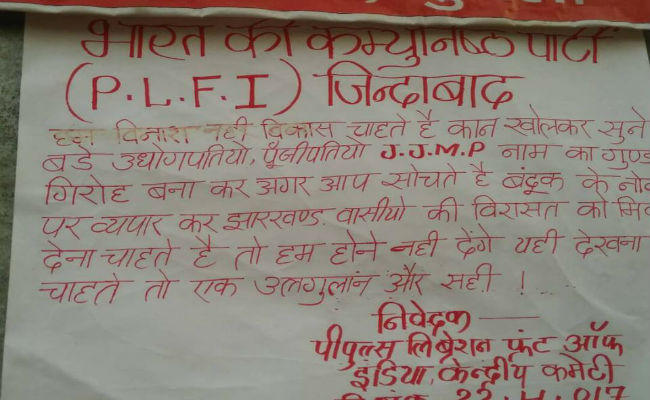 भारत की कम्युनिष्ट पार्टी
(P.L.F.I) जिन्दाबाद
हम विनाश नही विकास चाहते है कान खोलकर सुने
बडे उधोगपतियो, पूँजीपतियो J.J.M.P नाम का गुण्ड
गिरोह बना कर अगर आप सोचते है बंदूक के नोक
पर व्यपार कर झारखण्ड वासीयो की विरासत को मि
देना चाहते है तो हम होने नही देंगे यही देखना
चाहते तो एक उलगुलान और सही !
निवेदक —
पीपुल्स लिबेरेशन फ्रंट ऑफ
इंडिया, केन्द्रीय कमेटी